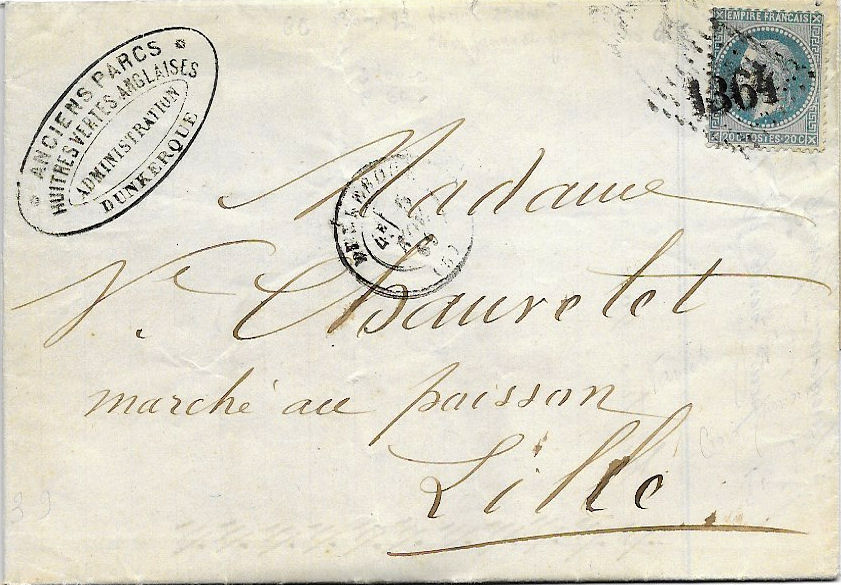 ANCIENS PARCS
HUITRES VERTES ANGLAISES
ADMINISTRATION
DUNKERQUE
EMPIRE FRANÇAIS
1364
20C POSTES 20C
4E
69
Madame
Ve Chauvelet
marché au poisson
Lille